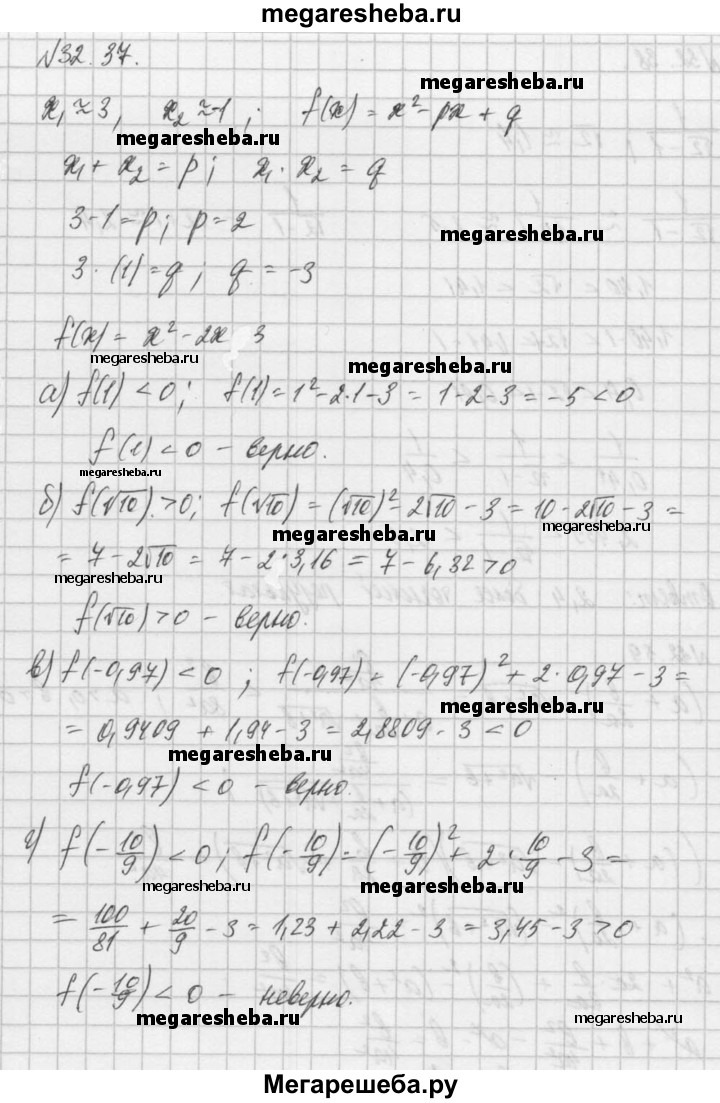 megaresheba.ru
№32.37.
x₁ ≈ 3, x₂ ≈ -1; f(x) = x² - px + q
megaresheba.ru
megaresheba.ru
x₁ + x₂ = p; x₁ · x₂ = q
3 - 1 = p; p = 2
megaresheba.ru
3 · (1) = q; q = -3
f(x) = x² - 2x 3
megaresheba.ru
megaresheba.ru
а) f(1) < 0; f(1) = 1² - 2·1 - 3 = 1 - 2 - 3 = -5 < 0
f(1) < 0 - верно.
megaresheba.ru
б) f(√10) > 0; f(√10) = (√10)² - 2√10 - 3 = 10 - 2√10 - 3 =
megaresheba.ru
megaresheba.ru
= 7 - 2√10 = 7 - 2·3,16 = 7 - 6,32 > 0
megaresheba.ru
f(√10) > 0 - верно.
megaresheba.ru
в) f(-0,97) < 0; f(-0,97) = (-0,97)² + 2·0,97 - 3 =
megaresheba.ru
= 0,9409 + 1,94 - 3 = 2,8809 - 3 < 0
megaresheba.ru
f(-0,97) < 0 - верно.
г) f(-10/9) < 0; f(-10/9) = (-10/9)² + 2·10/9 - 3 =
megaresheba.ru
megaresheba.ru
= 100/81 + 20/9 - 3 = 1,23 + 2,22 - 3 = 3,45 - 3 > 0
f(-10/9) < 0 - неверно.
megaresheba.ru
megaresheba.ru
Мегарешеба.ру